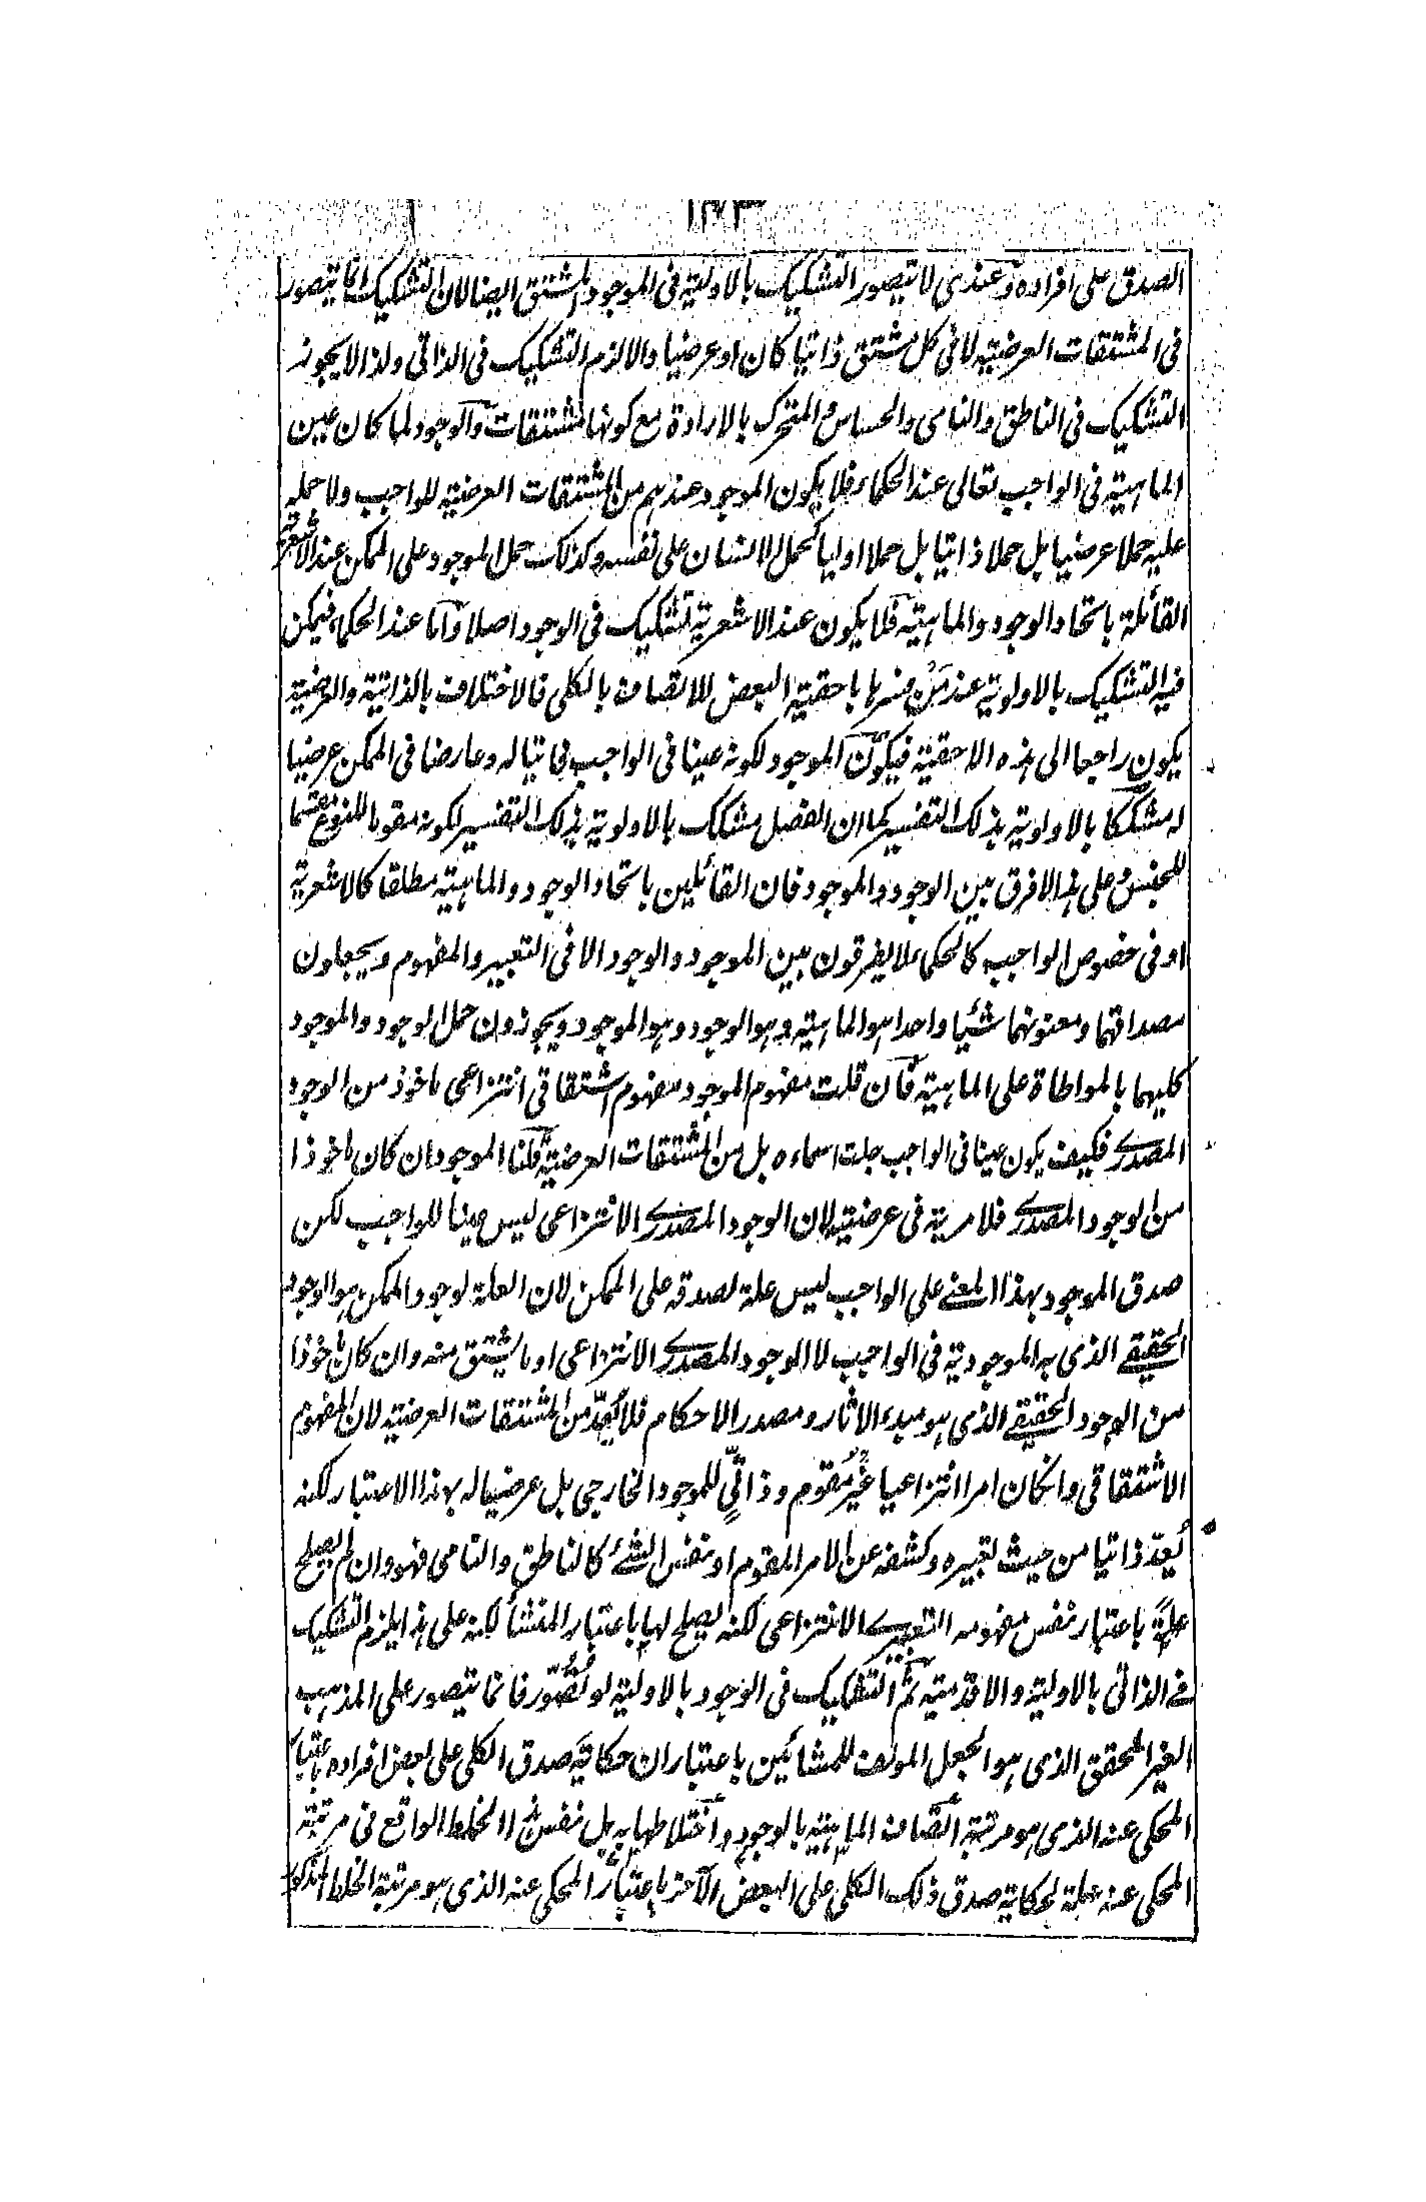 ١٢٣
الصدق على افراده وعندى لا يتصور التشكيك بالاولية فى الموجود المشتق ايضا لان التشكيك انما يتصور
فى المشتقات العرضية لا فى كل مشتق ذاتيا كان او عرضيا والا لزم التشكيك فى الذاتى ولذا لا يجوز
التشكيك فى الناطق والنامى والحساس والمتحرك بالارادة مع كونها مشتقات والوجود لما كان عين
الماهية فى الواجب تعالى عند الحكماء فلا يكون الموجود عندهم من المشتقات العرضية للواجب ولا حمله
عليه حملا عرضيا بل حملا ذاتيا بل حملا اوليا كحمل الانسان على نفسه وكذلك حمل الموجود على الممكن عند الاشعرية
القائلة باتحاد الوجود والماهية فلا يكون عند الاشعرية تشكيك فى الوجود اصلا واما عند الحكماء فيمكن
فيه التشكيك بالاولوية عند مَنْ فسرها باحقية البعض للاتصاف بالكلى فالاختلاف بالذاتية والعرضية
يكون راجعا الى هذه الاحقية فيكون الموجود لكونه عينا فى الواجب ذاتيا له وعارضا فى الممكن عرضيا
له مشككا بالاولوية بذلك التفسير كما ان الفصل مشكك بالاولوية بذلك التفسير لكونه مقوما للنوع مقسما
للجنس وعلى هذا لا فرق بين الوجود والموجود فان القائلين باتحاد الوجود والماهية مطلقا كالاشعرية
او فى خصوص الواجب كالحكماء لا يفرقون بين الموجود والوجود الا فى التعبير والمفهوم ويجعلون
مصداقهما ومعنونهما شيئا واحدا هو الماهية وهو الوجود وهو الموجود ويجوزون حمل الوجود والموجود
كليهما بالمواطاة على الماهية فان قلت مفهوم الموجود مفهوم اشتقاقى انتزاعى ماخوذ من الوجود
المصدرى فكيف يكون عينا فى الواجب جلت اسماءه بل من المشتقات العرضية قلنا الموجود ان كان ماخوذا
من الوجود المصدرى فلا مرية فى عرضيته لان الوجود المصدرى الانتزاعى ليس عينا للواجب لكن
صدق الموجود بهذا المعنى على الواجب ليس علة لصدقه على الممكن لان العلة لوجود الممكن هو الوجود
الحقيقى الذى به الموجودية فى الواجب لا الوجود المصدرى الانتزاعى او ما يشتق منه وان كان ماخوذا
من الوجود الحقيقى الذى هو مبدء الاثار ومصدر الاحكام فلا يُعدّ من المشتقات العرضية لان المفهوم
الاشتقاقى وانكان امرا انتزاعيا غيرُ مُقوم وذاتىٍّ للموجود الخارجى بل عرضيا له بهذا الاعتبار لكنه
يُعدّ ذاتيا من حيث تعبيره وكشفه عن الامر المقوم او نفس الشئ كالناطق والنامى فهو وان لم يصلح
علةً باعتبار نفس مفهومه التعبيرى الانتزاعى لكنه يصلح لها باعتبار المنشأ لكنه على هذا يلزم التشكيك
فى الذاتى بالاولية والاقدمية ثم التشكيك فى الوجود بالاولية لو تُصُوّر فانما يتصور على المذهب
الغير المحقق الذى هو الجعل المولف للمشائين باعتبار ان حكاية صدق الكلى على بعض افراده باعتبار
المحكى عنه الذى هو مرتبة اتصاف الماهية بالوجود واختلاطها به بل نفس هذا الخلط الواقع فى مرتبته
المحكى عنه علة لحكاية صدق ذلك الكلى على البعض الآخر باعتبار المحكى عنه الذى هو مرتبة الخلط المذكور